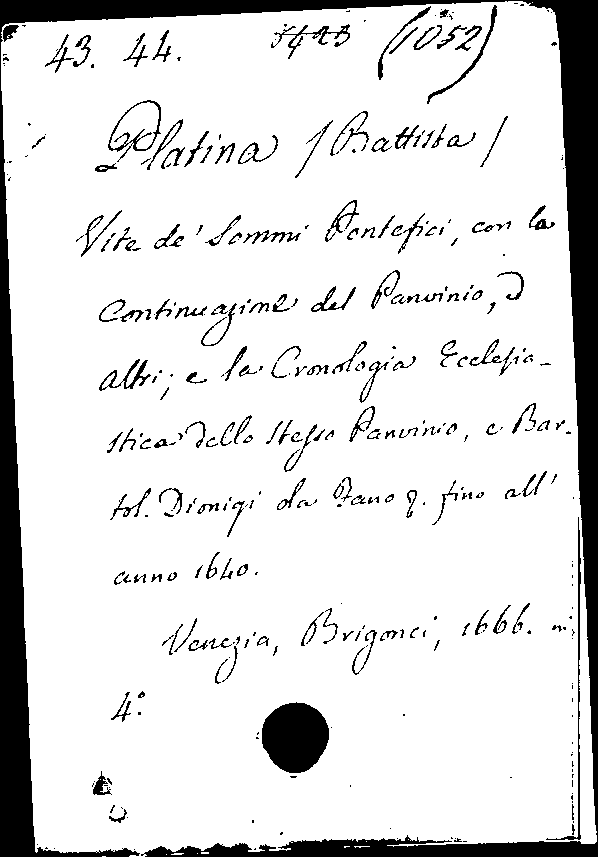 43. 44. 5423 (1052)
Platina / Battista /
Vite de' Sommi Pontefici, con la
Continuazione del Panvinio, ed
altri; e la Cronologia Ecclesia-
stica dello stesso Panvinio, e Bar-
tol. Dionigi da Fano &. fino all'
anno 1640.
Venezia, Brigonci, 1666. in
4°.